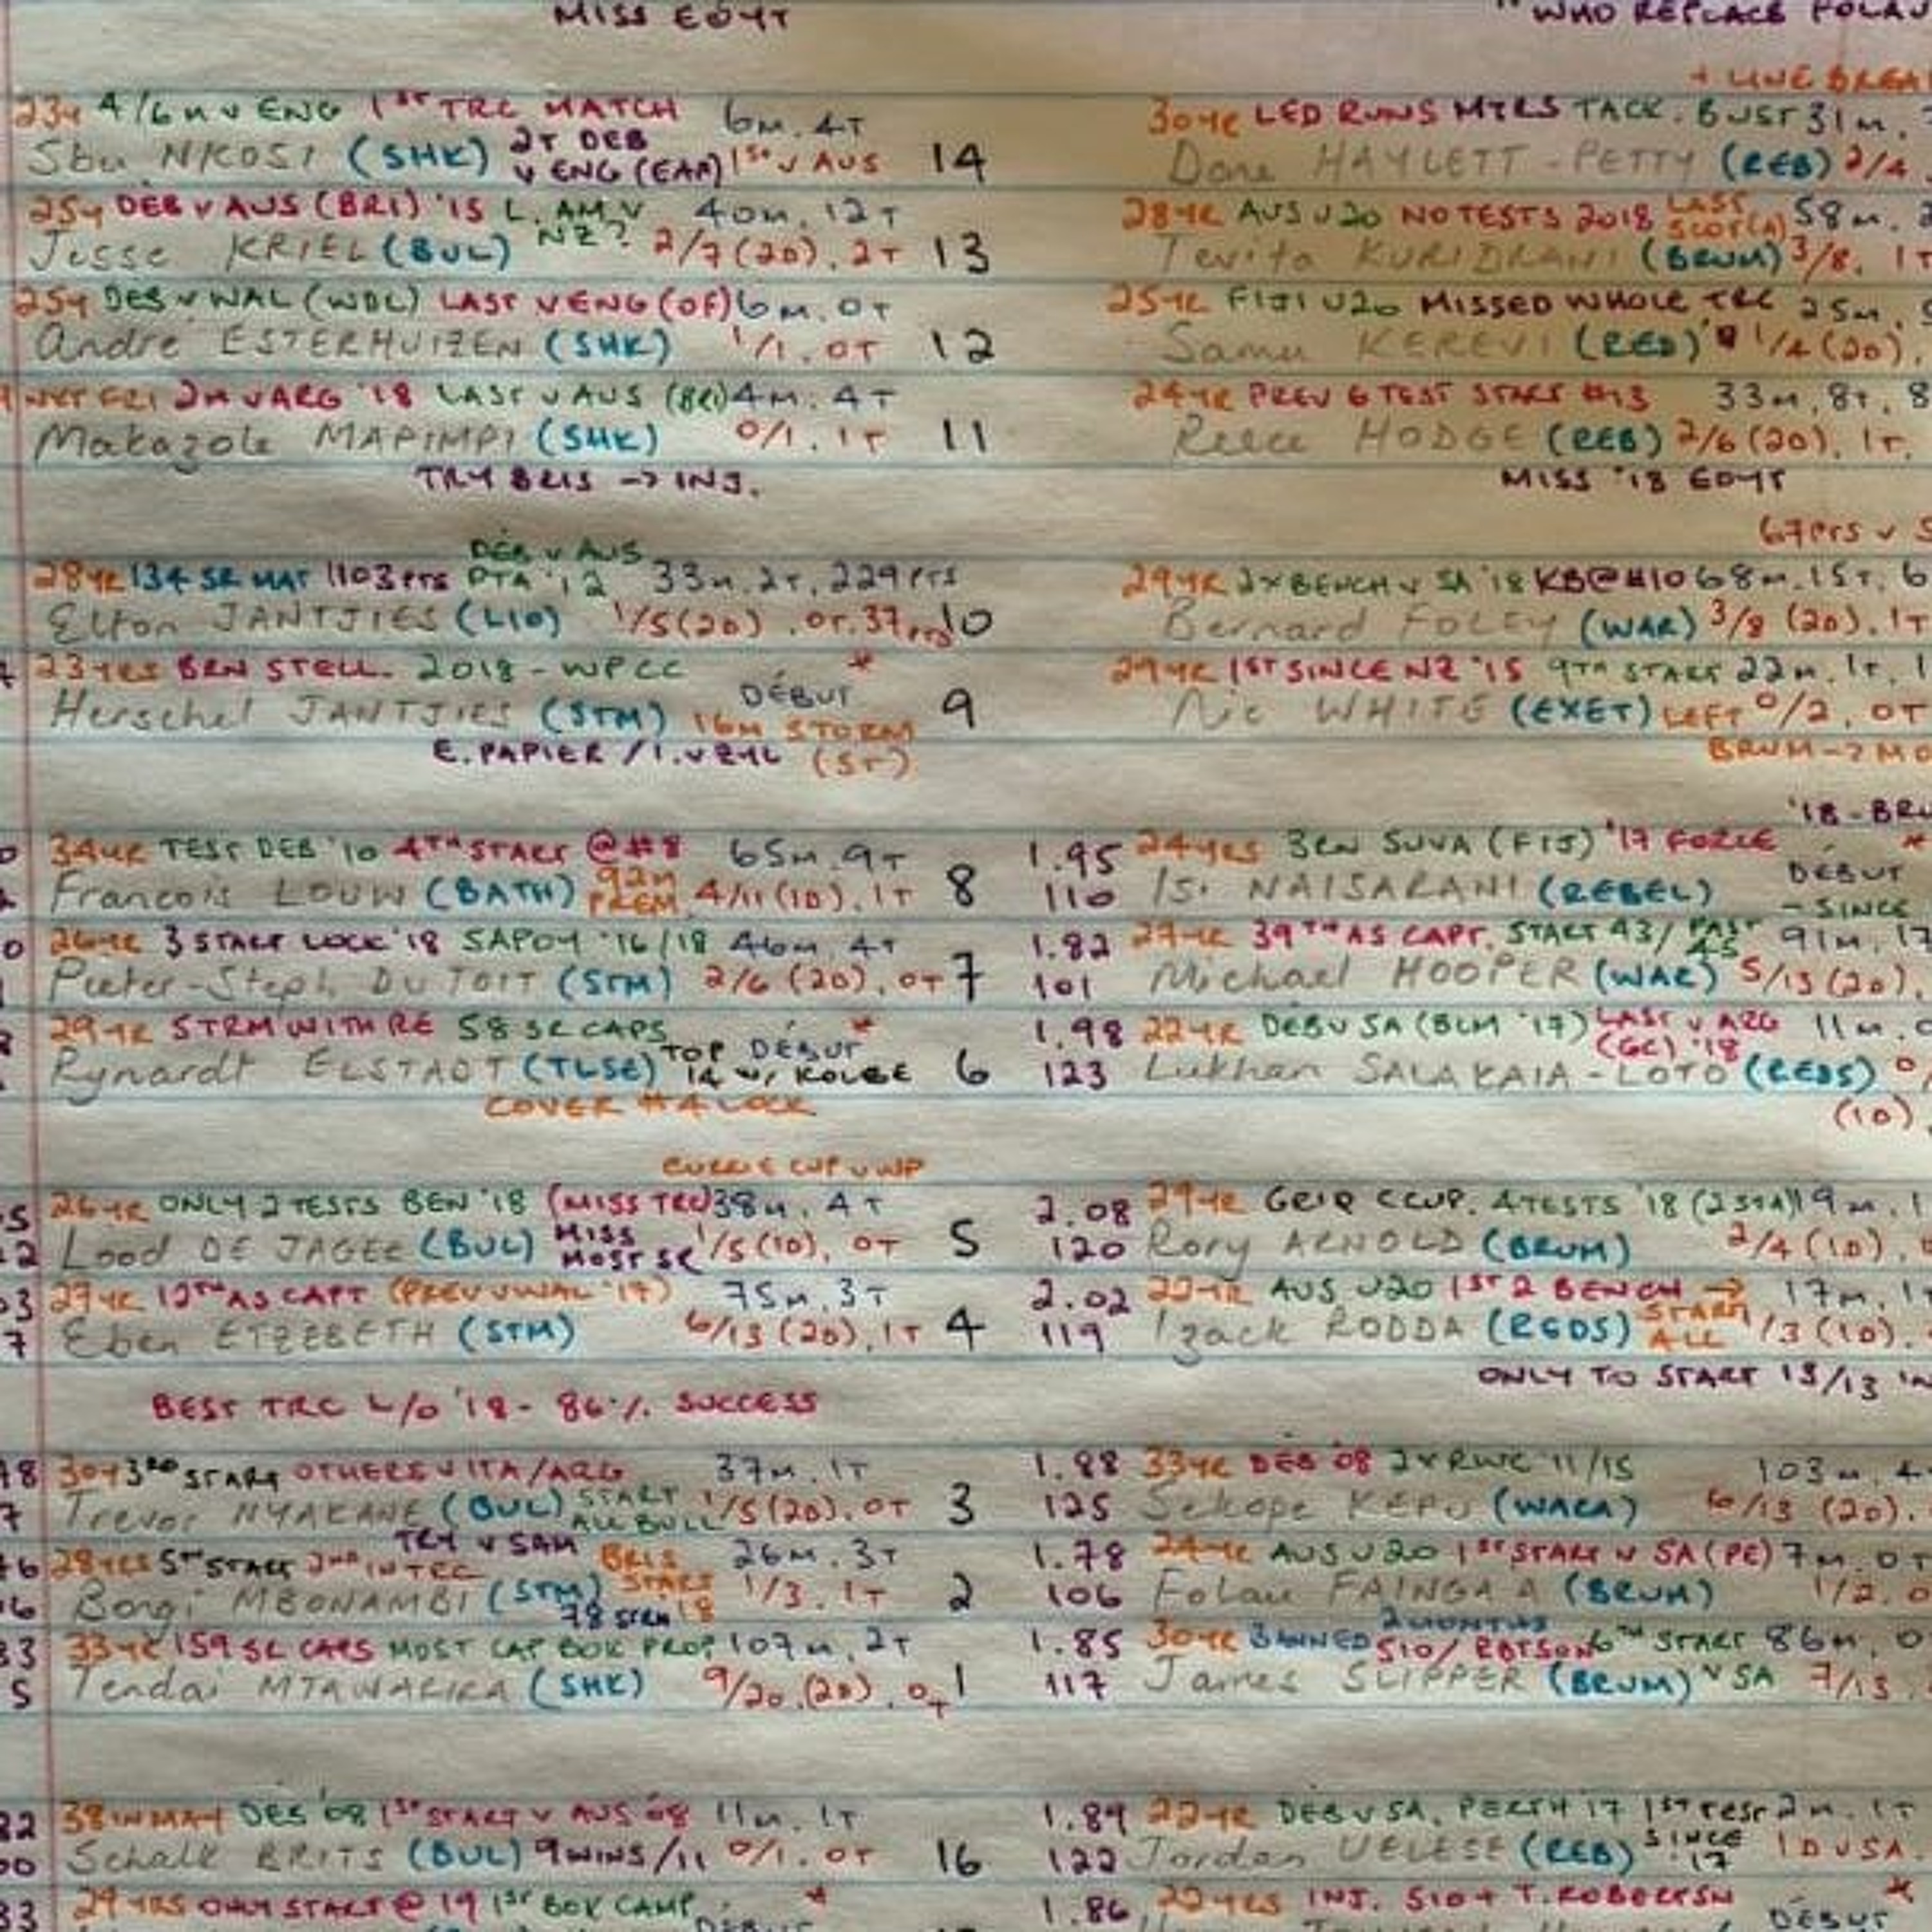 MISS EOYT
"WHO REPLACE FOLAU
+ LINE BREA
23y 4/6m v ENG 1ST TRC MATCH 6m. 4T
Sbu NKOSI (SHK) 2T DEB v ENG (EAP) 1ST v AUS 14
30YR LED RUNS MTRS TACK. BUST 31m.
Dane HAYLETT-PETTY (REB) 2/4
25y DEB v AUS (BRI) '15 L. AM. V NZ? 40m, 12T
Jesse KRIEL (BUL) 2/7 (2D), 2T 13
28YR AUS U20 NO TESTS 2018 LAST SCOT(A) 58m.
Tevita KURIDRANI (BRUM) 3/8, 1T
25y DEB v WAL (WDC) LAST v ENG (OF) 6m. 0T
Andre ESTERHUIZEN (SHK) 1/1. 0T 12
25YR FIJI U20 MISSED WHOLE TRC 25m,
Samu KEREVI (RED) 1/4 (2D),
NXT FRI 2m v ARG '18 LAST v AUS (BRI) 4m. 4T
Makazole MAPIMPI (SHK) 0/1. 1T 11
24YR PREV 6 TEST START #13 33m, 8T, 8
Reece HODGE (REB) 2/6 (2D), 1T.
TRY BRIS -> INJ.
MISS '18 EOYT
67PTS v S
DEB v AUS
28YR 134 SR MAT 1103PTS PTA '12 33m, 2T, 229PTS
Elton JANTJIES (LIO) 1/5 (2D). 0T. 37PTS 10
29YR 2x BENCH v SA '18 KB@#10 68m. 15T, 6
Bernard FOLEY (WAR) 3/8 (2D). 1T
23YRS BRN STELL. 2018 - WPCC *
Herschel JANTJIES (STM) DÉBUT 16m STORM 9
29YR 1ST SINCE NZ '15 9TH START 22m. 1T, 1
Nic WHITE (EXET) LEFT 0/2, 0T
E. PAPIER / I. V ZYL (5T)
BRUM -> MO
'18 - BRU
34YR TEST DEB '10 4TH START @#8 65m. 9T
Francois LOUW (BATH) 92m PREM. 4/11 (1D), 1T 8
1.95 24YRS BRN SUVA (FIJ) '17 FORCE *
110 Isi NAISARANI (REBEL) DÉBUT
- SINCE
26YR 3 START LOCK '18 SAPOY '16/18 46m. 4T
Pieter-Steph. DU TOIT (STM) 2/6 (2D), 0T 7
1.82 27YR 39TH AS CAPT. START 43/ PAST 45 91m, 17
101 Michael HOOPER (WAR) 5/13 (2D),
29YR STRM WITH RE 58 SR CAPS *
Rynardt ELSTADT (TLSE) TOP 14 w/ KOLBE DÉBUT 6
1.98 22YR DEB v SA (BLM '17) LAST v ARG (GC) '18 11m.
123 Lukhan SALAKAIA-LOTO (REDS) 0/
COVER #4 LOCK
(1D)
CURRIE CUP v WP
26YR ONLY 2 TESTS BEN '18 (MISS TRC) 38m. 4T
Lood DE JAGER (BUL) MISS MOST SR 1/5 (1D), 0T 5
2.08 29YR GRIQ CCUP. 4 TESTS '18 (2 STA) 19m, 1
120 Rory ARNOLD (BRUM) 2/4 (1D),
27YR 12TH AS CAPT (PREV v WAL '17) 75m. 3T
Eben ETZEBETH (STM) 6/13 (2D), 1T 4
2.02 22YR AUS U20 1ST 2 BENCH -> 17m. 1
119 Izack RODDA (REDS) START ALL 1/3 (1D).
ONLY TO START 13/13 IN
BEST TRC L/O '18 - 86% SUCCESS
30y 3RD START OTHERS v ITA/ARG 37m. 1T
Trevor NYAKANE (BUL) START ALL BULL 1/5 (2D), 0T 3
1.88 33YR DEB '08 2x RWC '11/15 103m, 4
125 Sekope KEPU (WARA) 6/13 (2D).
TRY v SAM
28YRS 5TH START 2ND IN TRC BRIS START '18 26m. 3T
Bongi MBONAMBI (STM) 78 STRM 1/3. 1T 2
1.78 24YR AUS U20 1ST START v SA (PE) 7m. 0T
106 Folau FAINGA'A (BRUM) 1/2. 0
33YR 159 SR CAPS MOST CAP BOK PROP 107m, 2T
Tendai MTAWARIRA (SHK) 9/20. (2D). 0T 1
1.85 30YR BANNED 2 MONTHS S10/ RBTSON 6TH START 86m. 0
117 James SLIPPER (BRUM) v SA 7/13
38 IN MAY DEB '08 1ST START v AUS '08 11m. 1T
Schalk BRITS (BUL) 9 WINS/11 0/1. 0T 16
1.89 22YR DEB v SA, PERTH '17 1ST TEST 2m. 1T
122 Jordan UELESE (REB) SINCE '17 1D v SA
29YRS ONLY START @ 19 1ST BOK CAMP *
DÉBUT
1.86 22YRS INJ. S10 + T. ROBERTSN *
DÉBUT